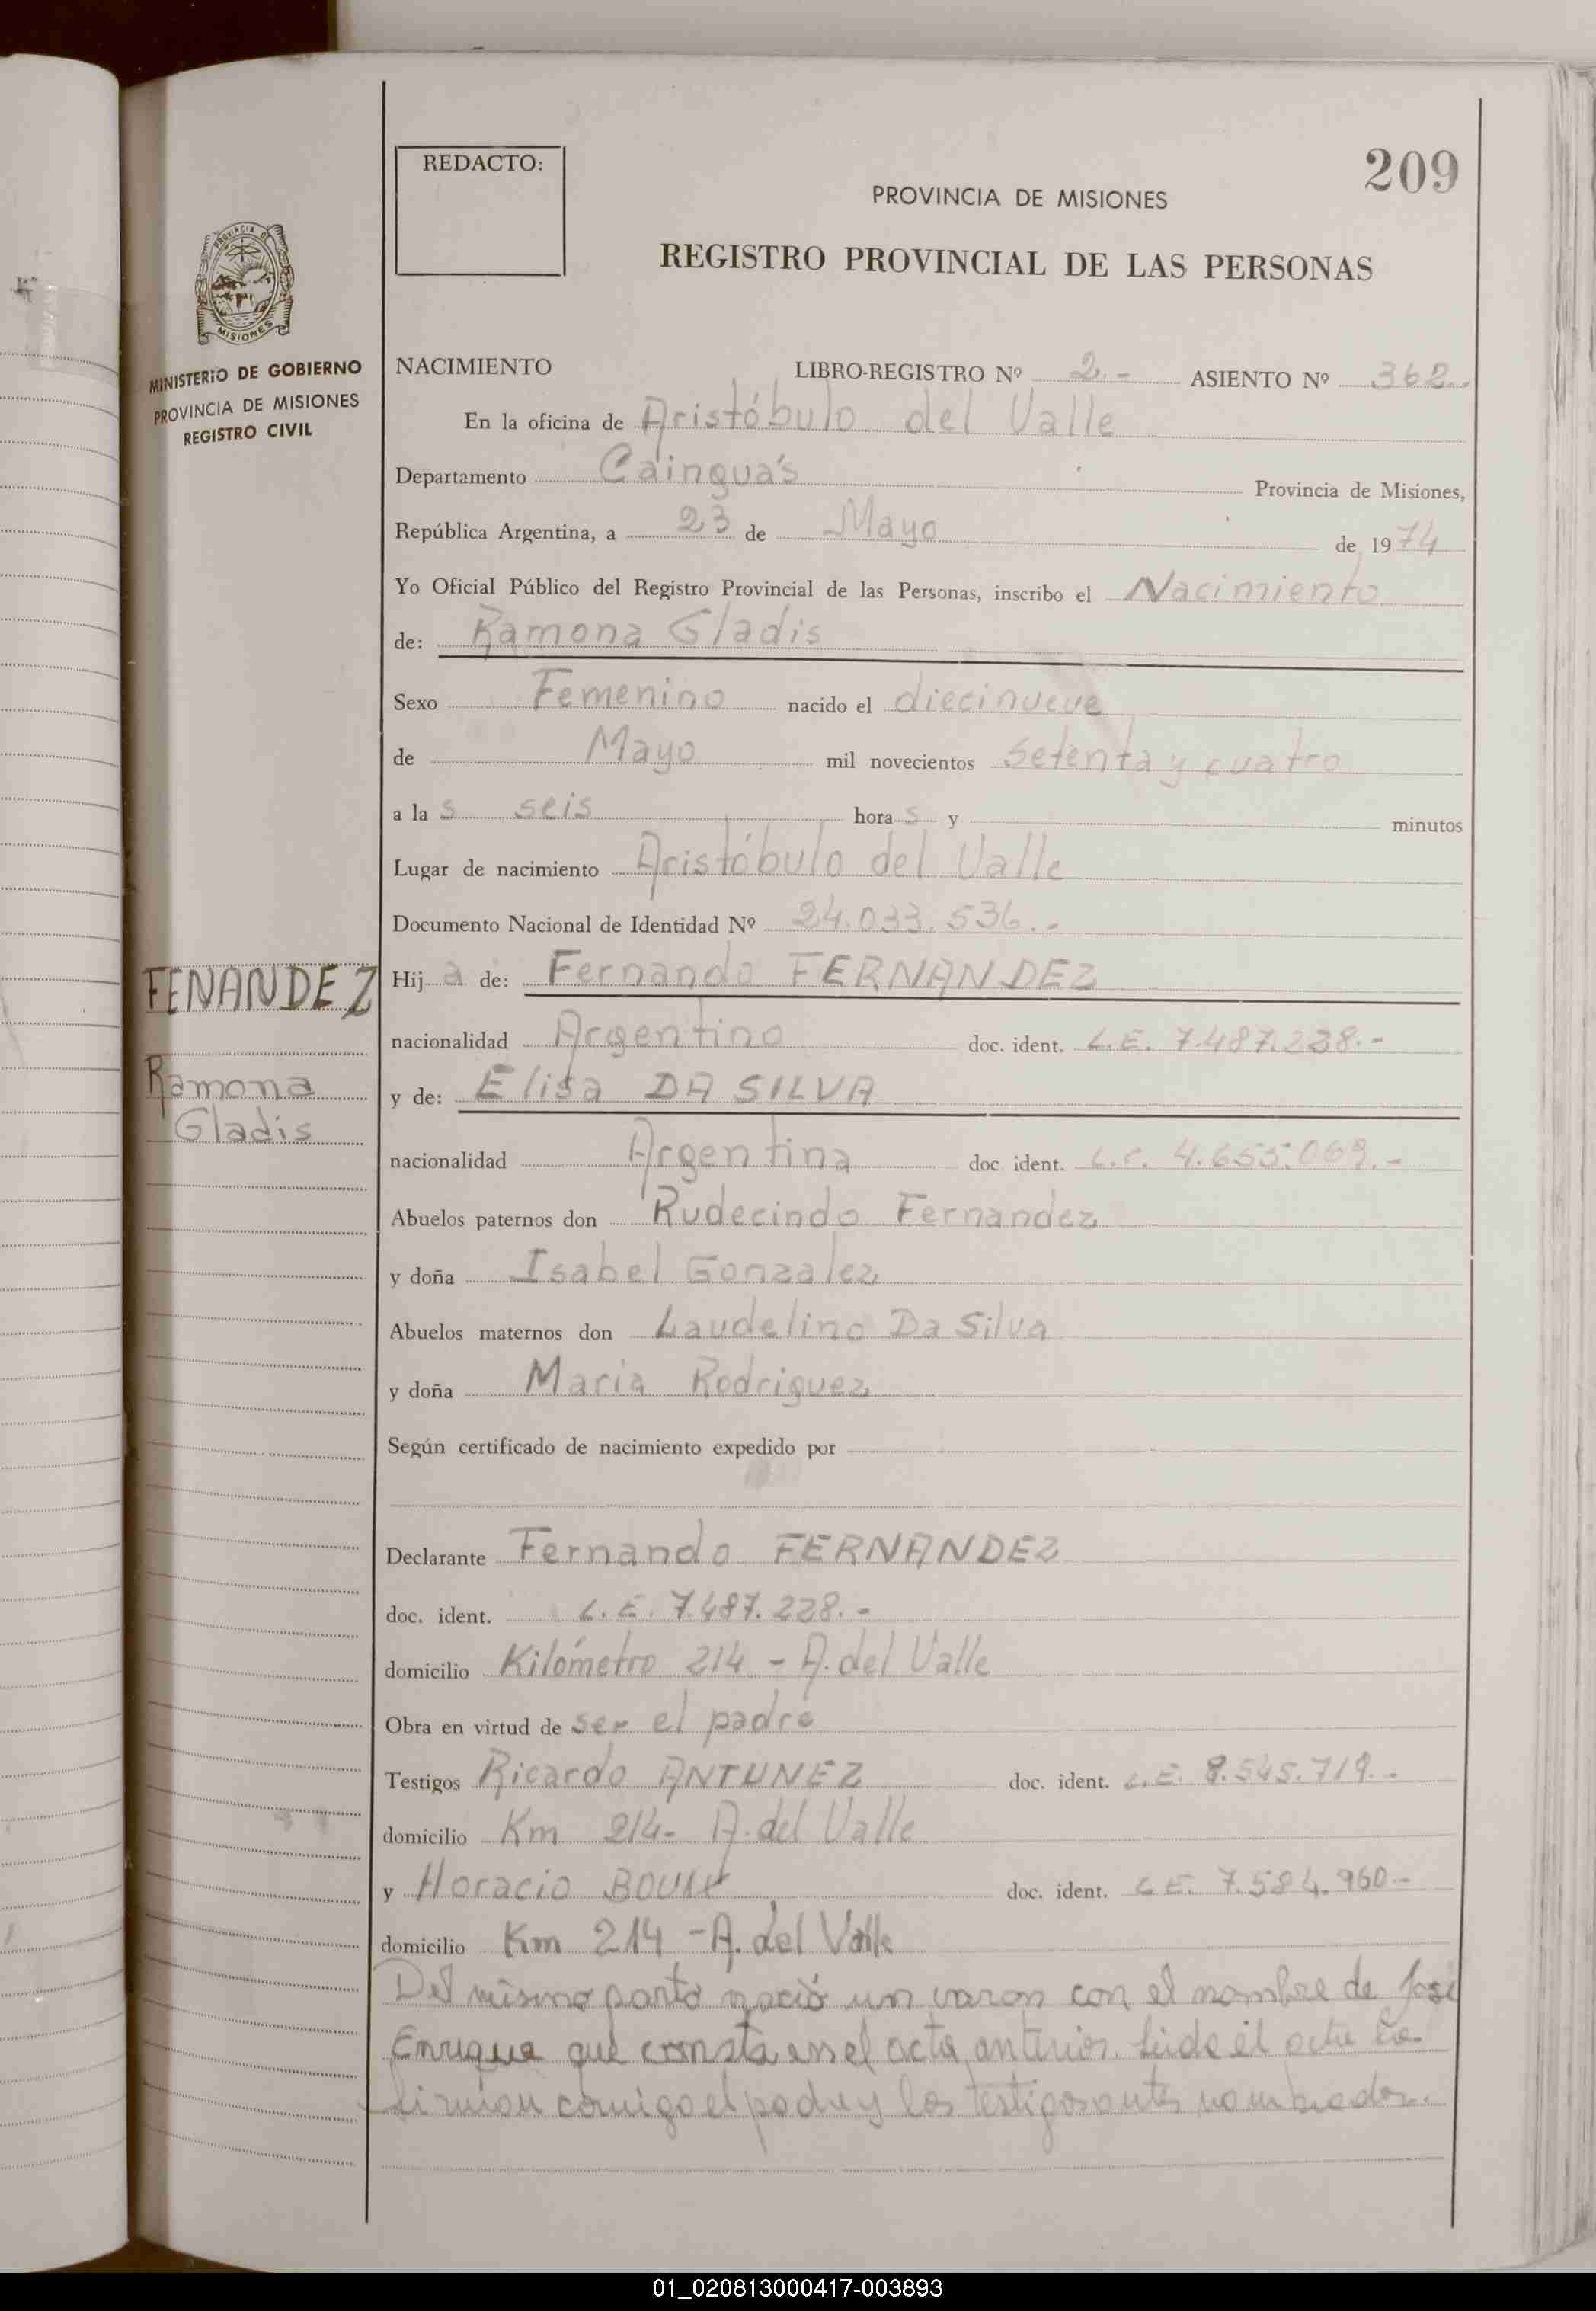 209
REDACTO:
PROVINCIA DE MISIONES
REGISTRO PROVINCIAL DE LAS PERSONAS
PROVINCIA DE
MISIONES
MINISTERIO DE GOBIERNO
PROVINCIA DE MISIONES
REGISTRO CIVIL
NACIMIENTO LIBRO-REGISTRO Nº 2.- ASIENTO Nº 362.
En la oficina de Aristóbulo del Valle
Departamento Cainguás Provincia de Misiones,
República Argentina, a 23 de Mayo de 1974
Yo Oficial Público del Registro Provincial de las Personas, inscribo el Nacimiento
de: Ramona Gladis
Sexo Femenino nacido el diecinueve
de Mayo mil novecientos setenta y cuatro
a las seis horas y minutos
Lugar de nacimiento Aristóbulo del Valle
Documento Nacional de Identidad Nº 24.033.536.-
FENANDEZ
Hija de: Fernando FERNANDEZ
nacionalidad Argentino doc. ident. L.E. 7.487.228.-
Ramona
Gladis
y de: Elisa DA SILVA
nacionalidad Argentina doc. ident. L.C. 4.655.069.-
Abuelos paternos don Rudecindo Fernandez
y doña Isabel Gonzalez
Abuelos maternos don Laudelino Da Silva
y doña Maria Rodriguez
Según certificado de nacimiento expedido por
Declarante Fernando FERNANDEZ
doc. ident. L.E. 7.487.228.-
domicilio Kilómetro 214 - A. del Valle
Obra en virtud de ser el padre
Testigos Ricardo ANTUNEZ doc. ident. L.E. 8.545.719.-
domicilio Km 214- A. del Valle
y Horacio doc. ident. L.E. 7.584.960-
domicilio Km 214 - A. del Valle
Del mismo parto nació un varon con el nombre de José
Enrique que consta en el acta anterior. Leida el acta la
firman conmigo el padre y los testigos antes nombrados.
01_020813000417-003893